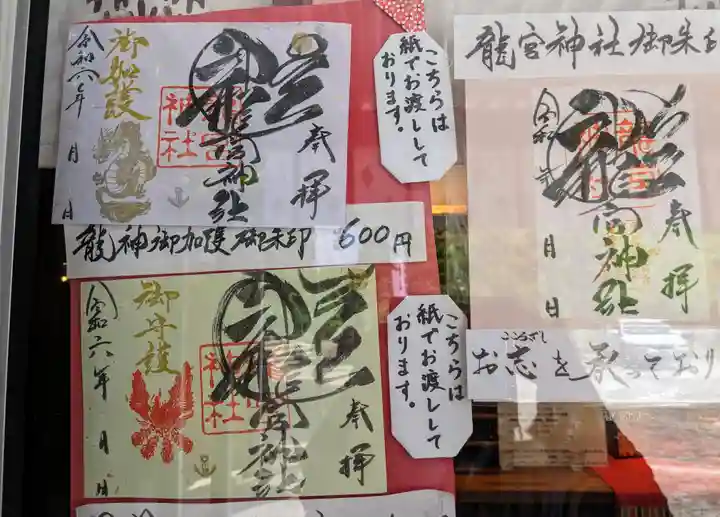 令和六年
月
日
御加護
龍宮神社
奉拝
こちらは
紙でお渡しして
おります。
龍神御加護御朱印 600円
令和六年
月
日
御守護
龍宮神社
奉拝
こちらは
紙でお渡しして
おります。
龍宮神社御朱印
令和
年
月
日
龍宮神社
奉拝
こころざし
お志を承っており